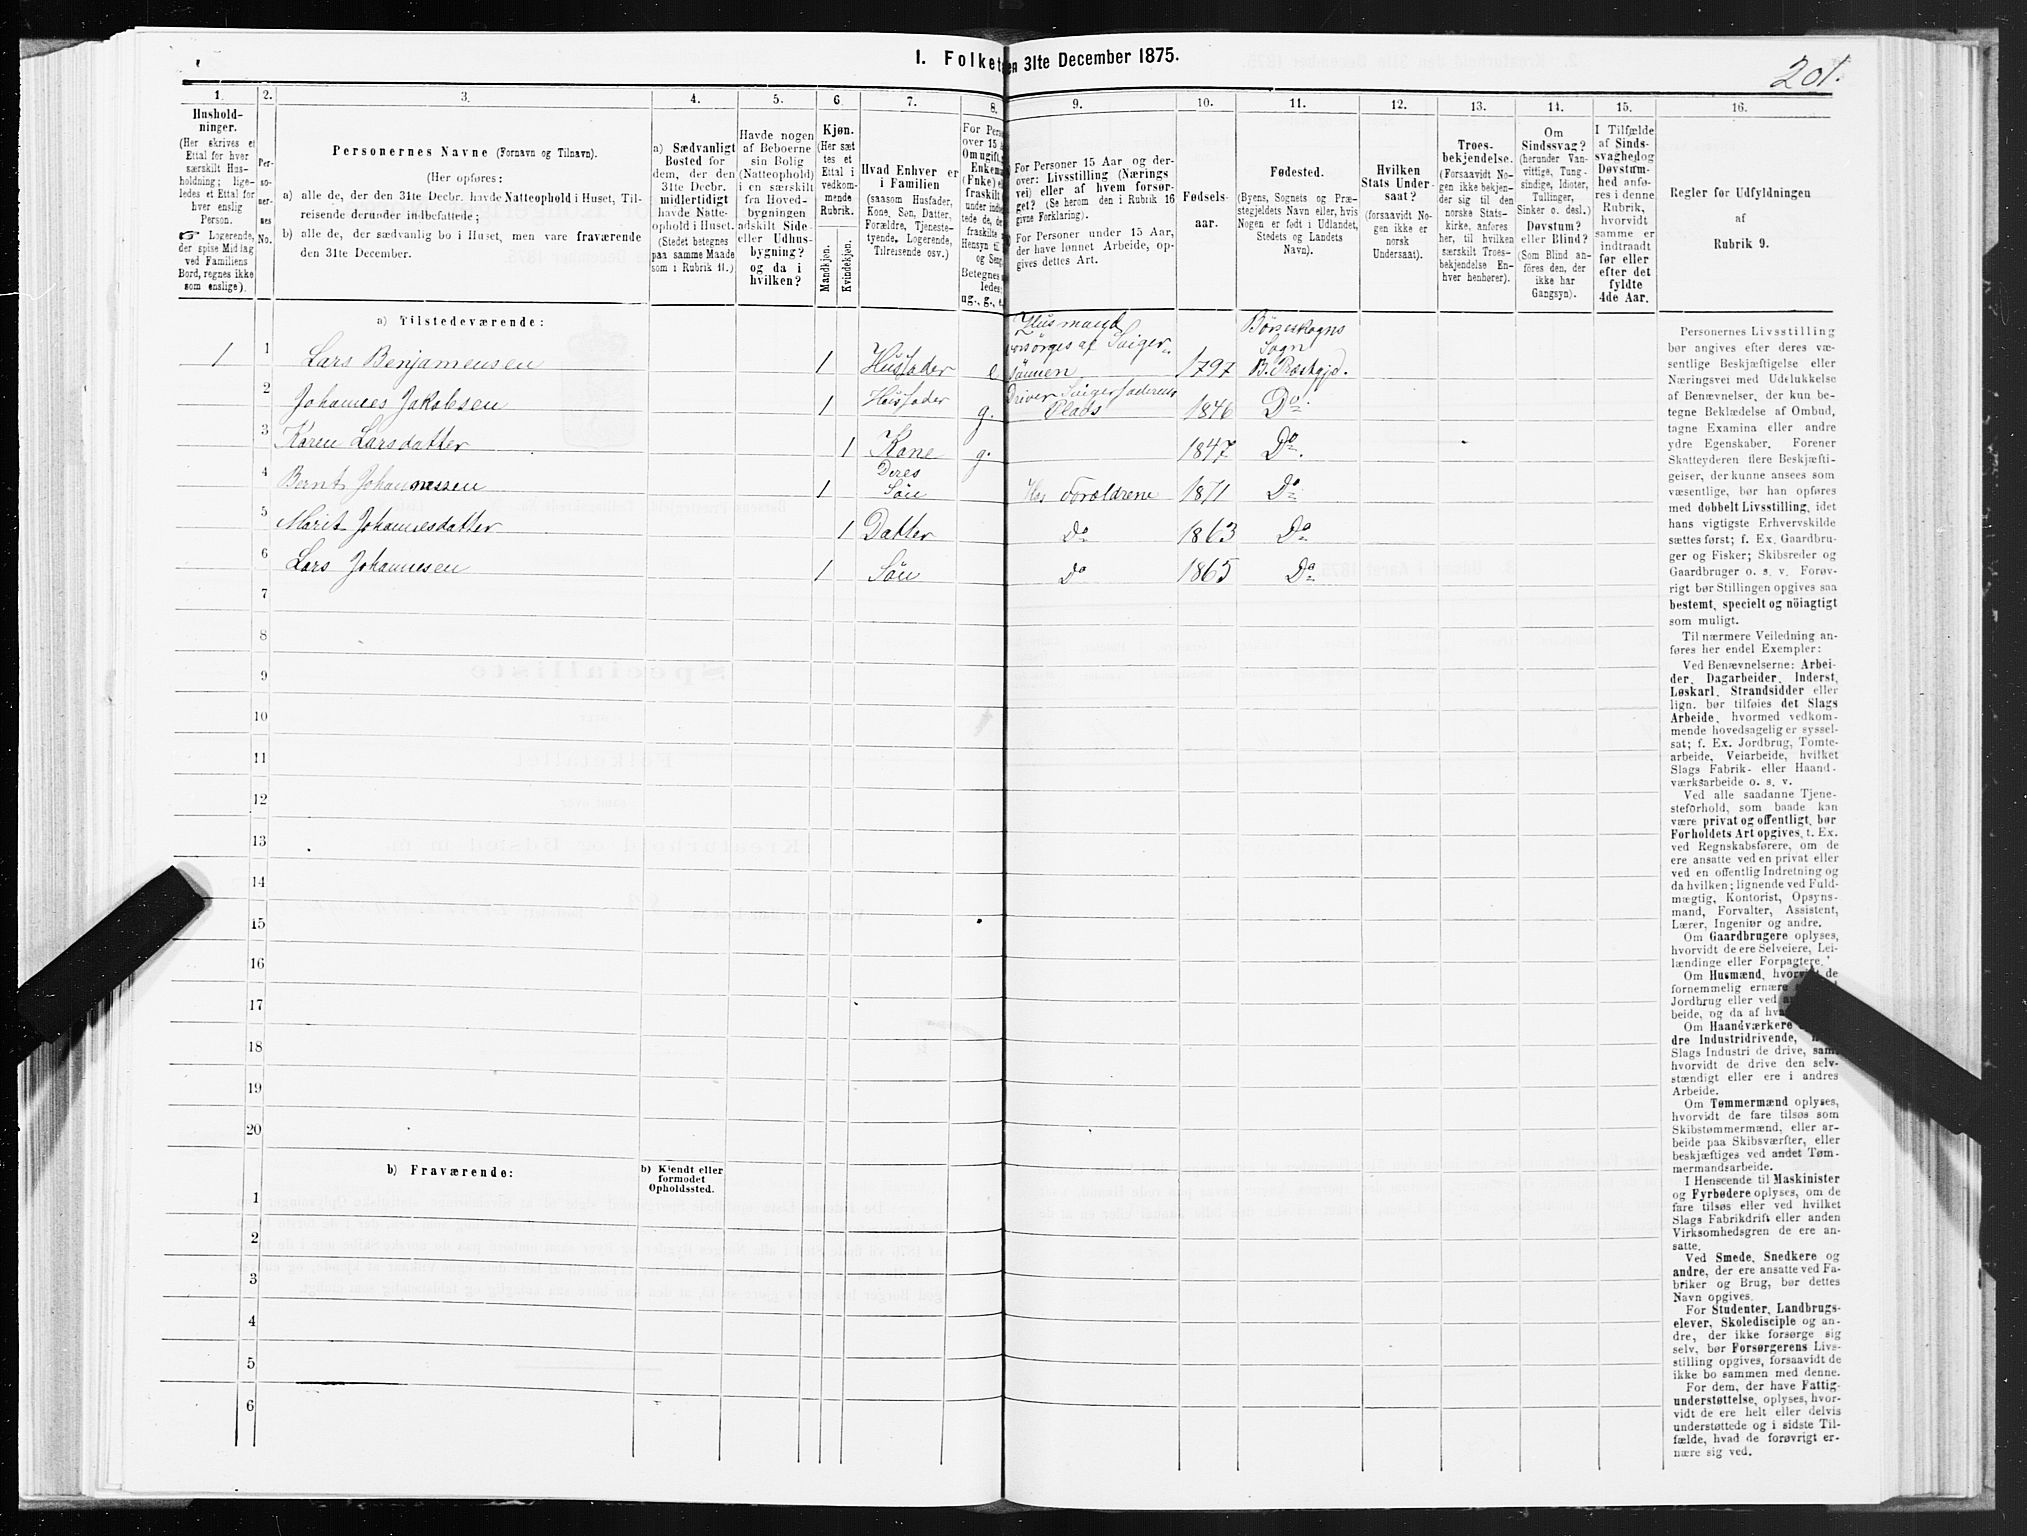 I. Folket en 31te December 1875.
201.
1. 2. 3. 4. 5. 6. 7. 8. 9. 10. 11. 12. 13. 14. 15. 16.
Hushold-
ninger.
(Her skrives et
Ettal for hver
særskilt Hus-
holdning; lige-
ledes et Ettal for
hver enslig
Person.
☞ Logerende,
der spise Middag
ved Familiens
Bord, regnes ikke
som enslige).
Per-
so-
ner-
nes
No.
Personernes Navne (Fornavn og Tilnavn).
(Her opføres:
a) alle de, der den 31te Decbr. havde Natteophold i Huset, Til-
reisende derunder indbefattede;
b) alle de, der sædvanlig bo i Huset, men vare fraværende
den 31te December.
a) Sædvanligt
Bosted for
dem, der den
31te Decbr.
midlertidigt
havde Natte-
ophold i Huset.
(Stedet betegnes
paa samme Maade
som i Rubrik 11.)
Havde nogen
af Beboerne
sin Bolig
(Natteophold)
i en særskilt
fra Hoved-
bygningen
adskilt Side-
eller Udhus-
bygning?
og da i
hvilken?
Kjøn.
(Her sæt
tes et
Ettal i
vedkom-
mende
Rubrik.
Mandkjøn.
Kvindekjøn.
Hvad Enhver er
i Familien
(saasom Husfader,
Kone, Søn, Datter,
Forældre, Tjeneste-
tyende, Logerende,
Tilreisende osv.)
For Pers
over 15 A
Om ugift,
Enkem
(Enke) e
fraskilt
under indbe
tede de, d
fraskilte
Hensyn til
og Seng
Betegnes
ledes:
ug., g., e.
For Personer 15 Aar og der-
over: Livsstilling (Nærings
vei) eller af hvem forsør-
get? (Se herom den i Rubrik 16
givne Forklaring).
For Personer under 15 Aar,
der have lønnet Arbeide, op-
gives dettes Art.
Fødsels-
aar.
Fødested.
(Byens, Sognets og Præ-
stegjeldets Navn eller, hvis
Nogen er født i Udlandet,
Stedets og Landets
Navn).
Hvilken
Stats Under-
saat?
(forsaavidt No-
gen ikke er
norsk
Undersaat).
Troes-
bekjendelse.
(Forsaavidt No-
gen ikke bekjen-
der sig til den
norske Stats-
kirke, anføres
her, til hvilken
særskilt Troes-
bekjendelse En-
hver henhører).
Om
Sindssvag?
(herunder Van-
vittige, Tung-
sindige, Idioter,
Tullinger,
Sinker o. desl.)
Døvstum?
eller Blind?
(Som Blind an-
føres den, der
ikke har
Gangsyn).
I Tilfælde
af Sinds-
svaghed og
Døvstum-
hed anfø-
res i denne
Rubrik,
hvorvidt
samme er
indtraadt
før eller
efter det
fyldte
4de Aar.
Regler for Udfyldningen
af
Rubrik 9.
a) Tilstedeværende:
1 1 Lars Benjamensen 1 Husfader e Husmand forsørges af Sviger-
sønnen 1797 Børseskogns
Sogn
B. Præstgjd.
2 Johannes Jakobsen 1 Husfader g. Driver Svigerfaderens
Plads 1846 Do
3 Karen Larsdatter 1 Kone g. 1847 Do
4 Bernt Johannessen 1 Deres
Søn Hos Forældrene 1871 Do
5 Marit Johannesdatter 1 Datter Do 1863 Do
6 Lars Johannesen 1 Søn Do 1865 Do
7
8
9
10
11
12
13
14
15
16
17
18
19
20
b) Fraværende:
b) Kjendt eller
formodet
Opholdssted.
1
2
3
4
5
6
Personernes Livsstilling
bør angives efter deres væ-
sentlige Beskjæftigelse eller
Næringsvei med Udelukkelse
af Benævnelser, der kun be-
tegne Beklædelse af Ombud,
tagne Examina eller andre
ydre Egenskaber. Forener
Skatteyderen flere Beskjæfti-
gelser, der kunne ansees som
væsentlige, bør han opføres
med dobbelt Livsstilling, idet
hans vigtigste Erhvervskilde
sættes først; f. Ex. Gaardbru-
ger og Fisker; Skibsreder og
Gaardbruger o. s. v. Forøv-
rigt bør Stillingen opgives saa
bestemt, specielt og nöiagtigt
som muligt.
Til nærmere Veiledning an-
føres her endel Exempler:
Ved Benævnelserne: Arbei-
der, Dagarbeider, Inderst,
Løskarl, Strandsidder eller
lign. bør tilføies det Slags
Arbeide, hvormed vedkom-
mende hovedsagelig er syssel-
sat; f. Ex. Jordbrug, Tomte-
arbeide, Veiarbeide, hvilket
Slags Fabrik- eller Haand-
værksarbeide o. s. v.
Ved alle saadanne Tjene-
steforhold, som baade kan
være privat og offentligt, bør
Forholdets Art opgives, t. Ex.
ved Regnskabsførere, om de
ere ansatte ved en privat eller
ved en offentlig Indretning og
da hvilken; lignende ved Fuld-
mægtig, Kontorist, Opsyns-
mand, Forvalter, Assistent,
Lærer, Ingeniør og andre.
Om Gaardbrugere oplyses,
hvorvidt de ere Selveiere, Lei-
lændinge eller Forpagtere.
Om Husmænd, hvorvidt de
fornemmelig ernære
Jordbrug eller ved
beide, og da af
Om Haandværkere
dre Industridrivende,
Slags Industri de drive, samt
hvorvidt de drive den selv-
stændigt eller ere i andres
Arbeide.
Om Tømmermænd oplyses,
hvorvidt de fare tilsøs som
Skibstømmermænd, eller ar-
beide paa Skibsværfter, eller
beskjæftiges ved andet Tøm-
mermandsarbeide.
I Henseende til Maskinister
og Fyrbødere oplyses, om de
fare tilsøs eller ved hvilket
Slags Fabrikdrift eller anden
Virksomhedsgren de ere an-
satte.
Ved Smede, Snedkere og
andre, der ere ansatte ved Fa-
briker og Brug, bør dettes
Navn opgives.
For Studenter, Landbrugs-
elever, Skoledisciple og an-
dre, der ikke forsørge sig
selv, bør Forsørgerens Livs-
stilling opgives, forsaavidt de
ikke bo sammen med denne.
For dem, der have Fattig-
understøttelse, oplyses, hvor-
vidt de ere helt eller delvis
understøttede og i sidste Til-
fælde, hvad de forøvrigt er-
nære sig ved.